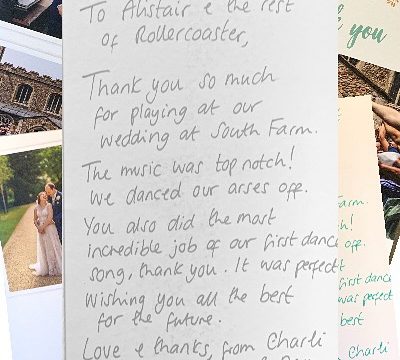 To Alistair & the rest
of Rollercoaster,
Thank you so much
for playing at our
wedding at South Farm.
The music was top notch!
We danced our arses off.
You also did the most
incredible job of our first dance
song, thank you. It was perfect
Wishing you all the best
for the future.
Love & thanks, from Charli
you
Farm.
h!
off.
first dance
was perfect
best
Charli